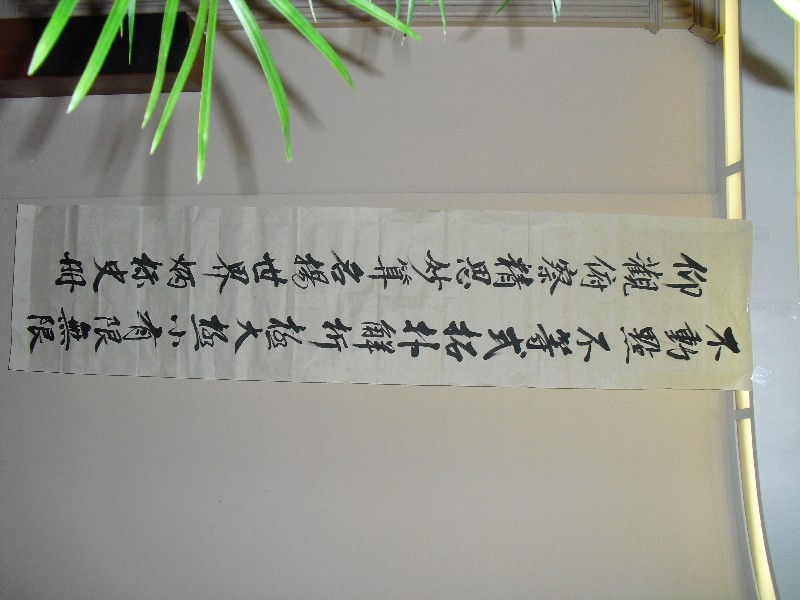 不動點不等式拓扑解析極大極小有限無限
仰觀俯察精思妙算名揚世界炳标史册